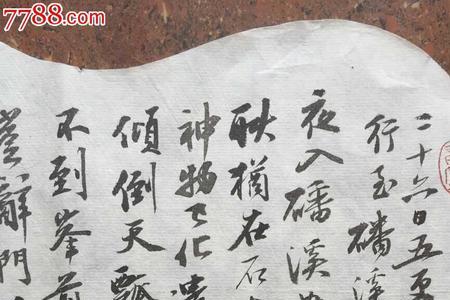 7788.com
二十六日五更
行至磻溪
夜入磻溪
耿猶在石
神物已化遺
傾倒天瓢
不到峯前
辭門